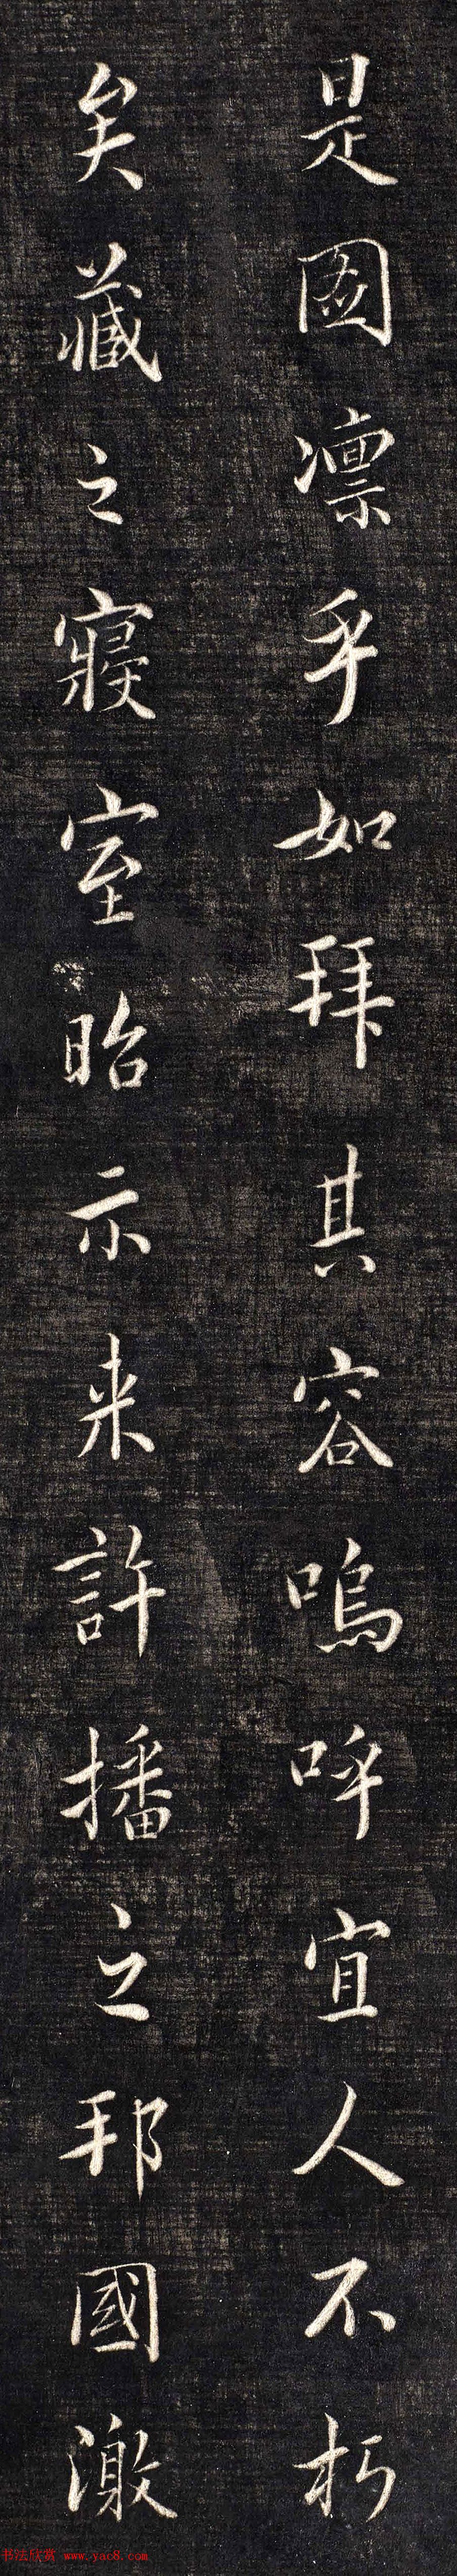 是圖凛乎如拜其容嗚呼宜人不朽
矣藏之寢室昭示来許播之邦國激
书法欣赏 www.yac8.com